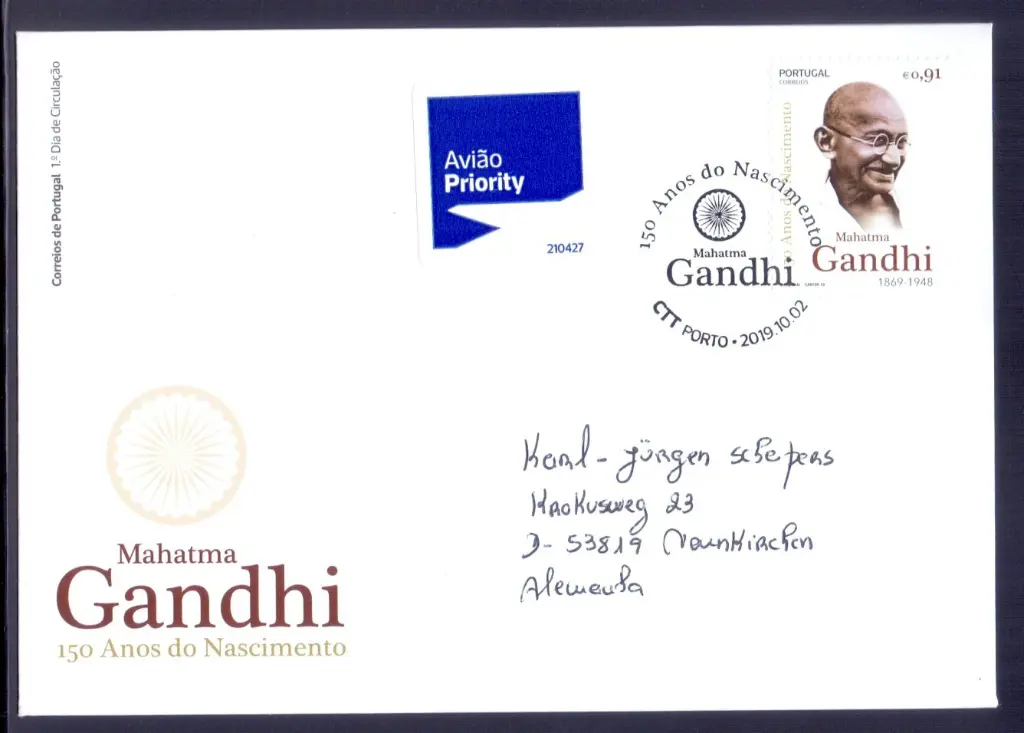 Correios de Portugal 1.º Dia de Circulação
Avião
Priority
210427
PORTUGAL
CORREIOS
€0,91
150 Anos do Nascimento
Mahatma
Gandhi
1869-1948
150 Anos do Nascimento
Mahatma
Gandhi
CTT PORTO • 2019.10.02
Karl-Jürgen Schepers
Krokusweg 23
D-53819 Neunkirchen
Alemanha
Mahatma
Gandhi
150 Anos do Nascimento